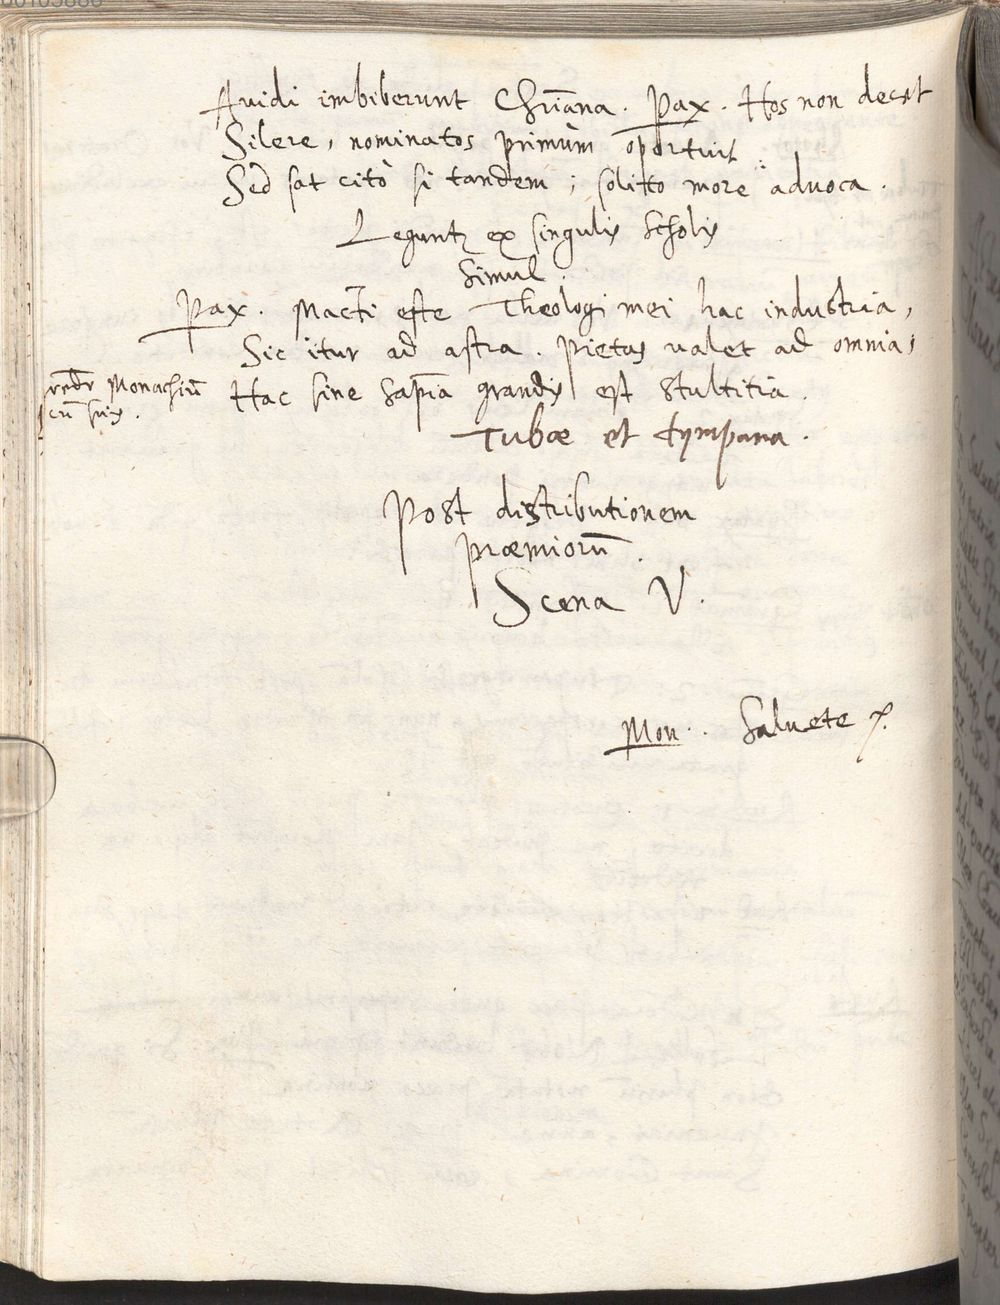 Auidi imbiberunt Chr̄iana. Pax. Hos non decet
Silere, nominatos primùm oportuit
Sed sat citò si tandem; solito more advoca.
Leguntꝛ ex singulis scholis
simul
Pax. Macti este Theologi mei hac industria,
Sic itur ad astra. Pietas valet ad omnia,
Hac sine sapīa grandis est stultitia.
Monachiū
cū suis.
Tubæ et tympana.
Post distributionem
præmiorū.
Scena V.
Mon. Saluete